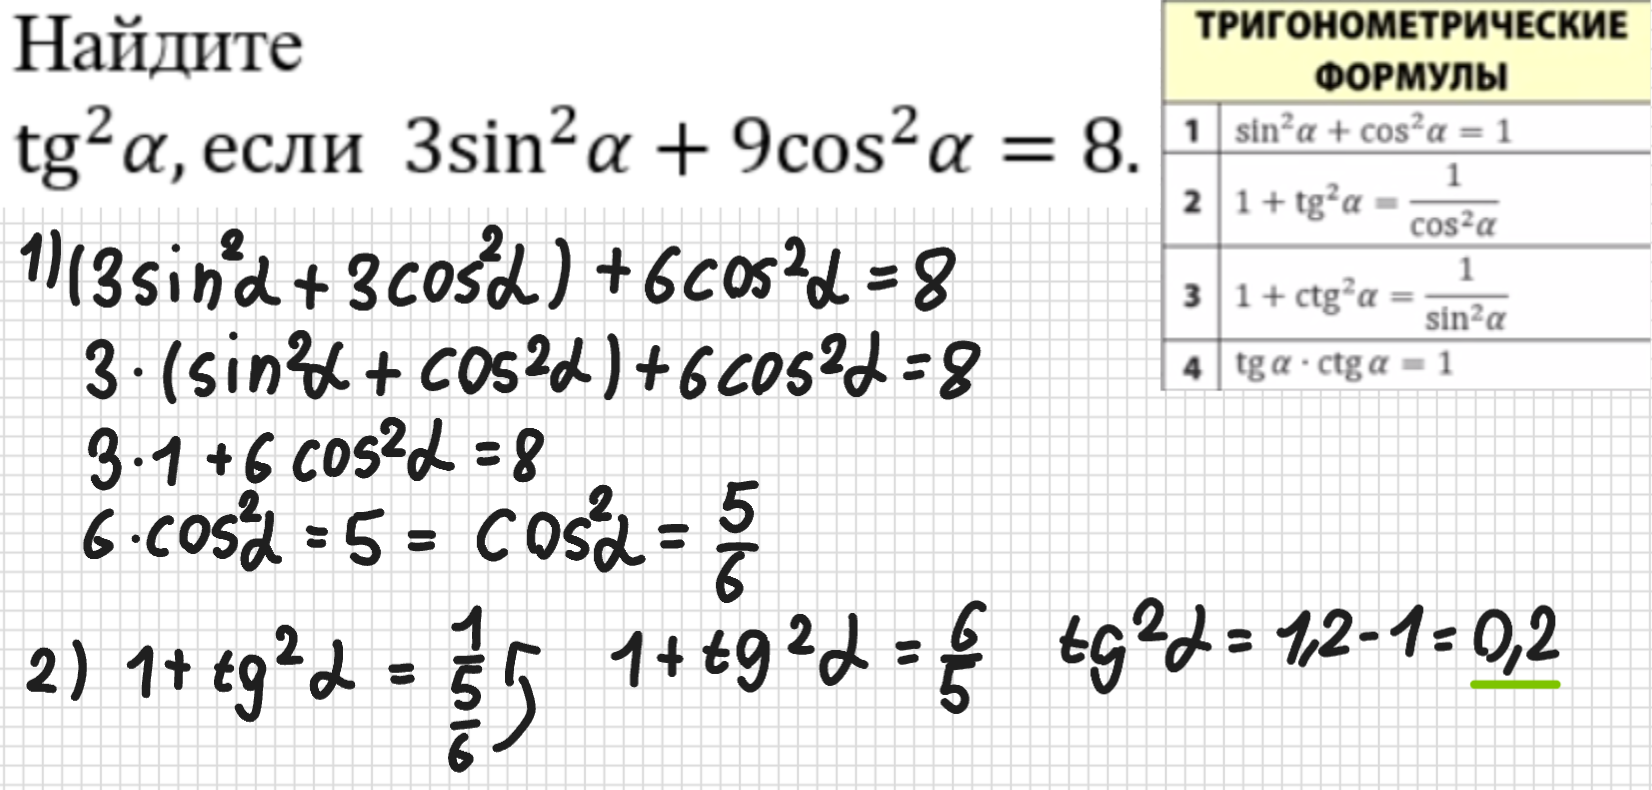 Найдите
tg²α, если 3sin²α + 9cos²α = 8.
ТРИГОНОМЕТРИЧЕСКИЕ
ФОРМУЛЫ
1 sin²α + cos²α = 1
2 1 + tg²α = 1/cos²α
3 1 + ctg²α = 1/sin²α
4 tg α · ctg α = 1
1) (3sin²α + 3cos²α) + 6cos²α = 8
3 · (sin²α + cos²α) + 6cos²α = 8
3 · 1 + 6 cos²α = 8
6 · cos²α = 5 = cos²α = 5/6
2) 1 + tg²α = 1/(5/6) 1 + tg²α = 6/5 tg²α = 1,2 - 1 = 0,2